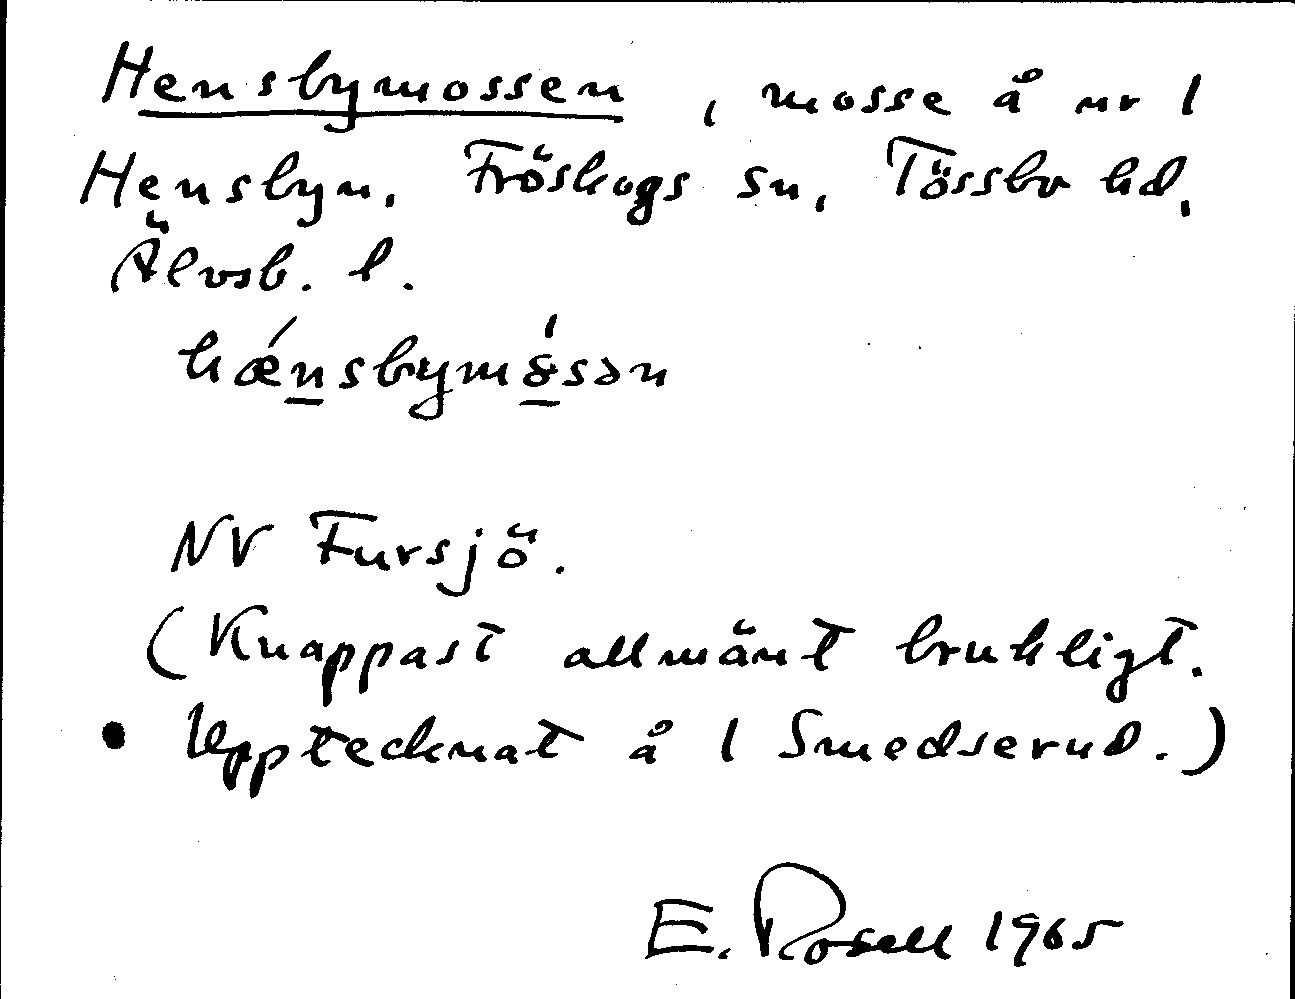 Hensbymossen, mosse å nr 1
Hensbyn, Fröskogs sn, Tössbo hd,
Älvsb. l.
hǽnsbymòsən
NV Fursjö.
(Knappast allmänt brukligt.
• Upptecknat å 1 Smedserud.)
E. Rosell 1965